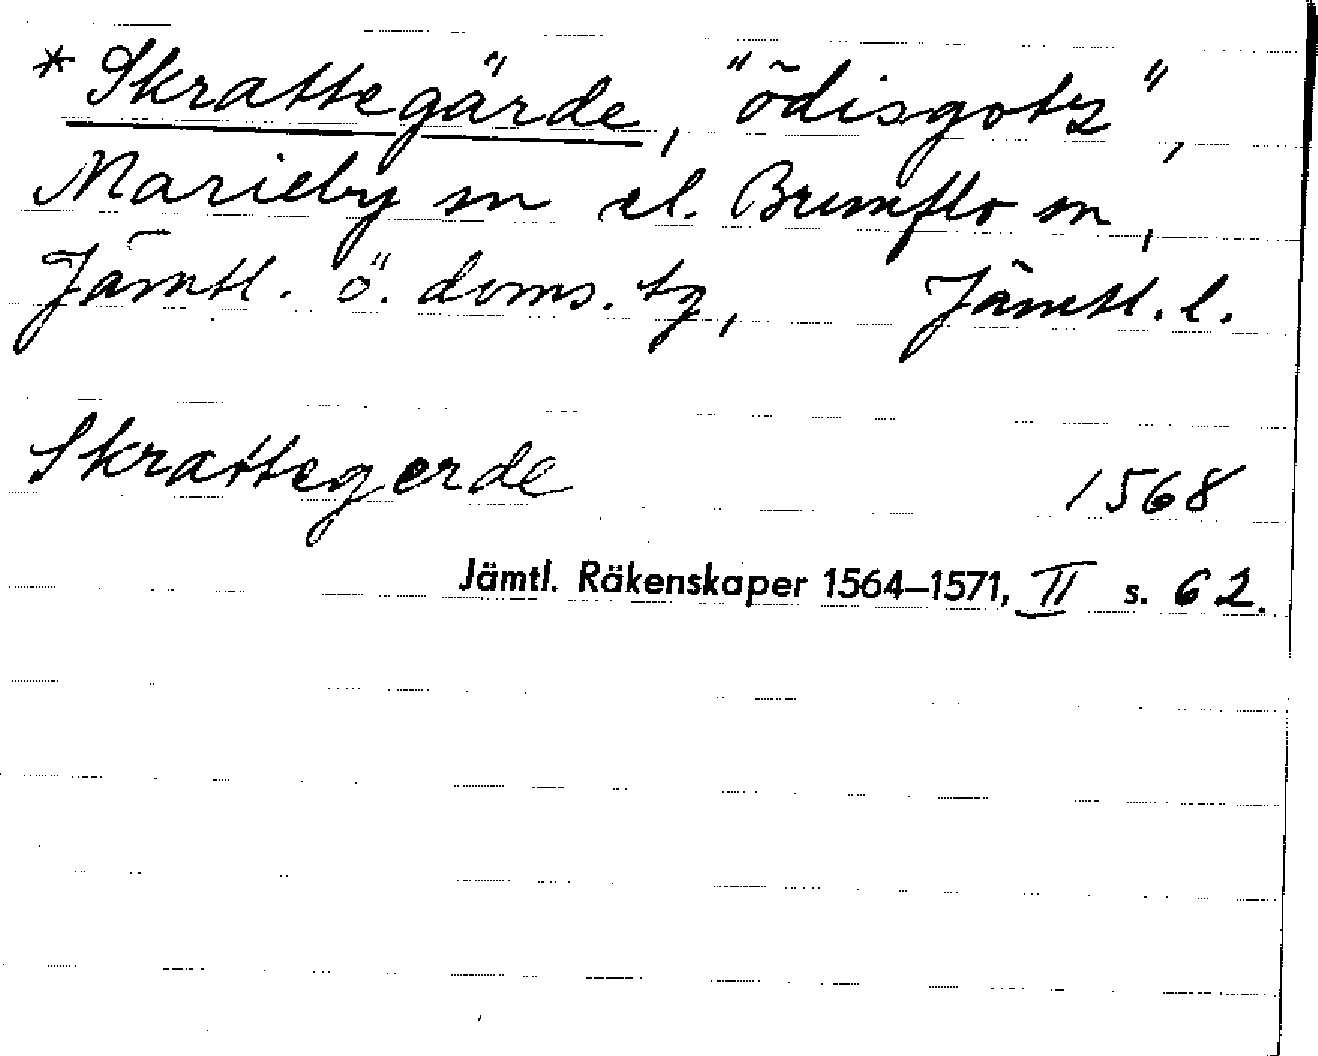 * Skrattegärde, "ödisgotz",
Marieby sn el. Brunflo sn,
Jämtl. ö. doms. tg, Jämtl. l.
Skrattegerde 1568
Jämtl. Räkenskaper 1564–1571, II s. 62.